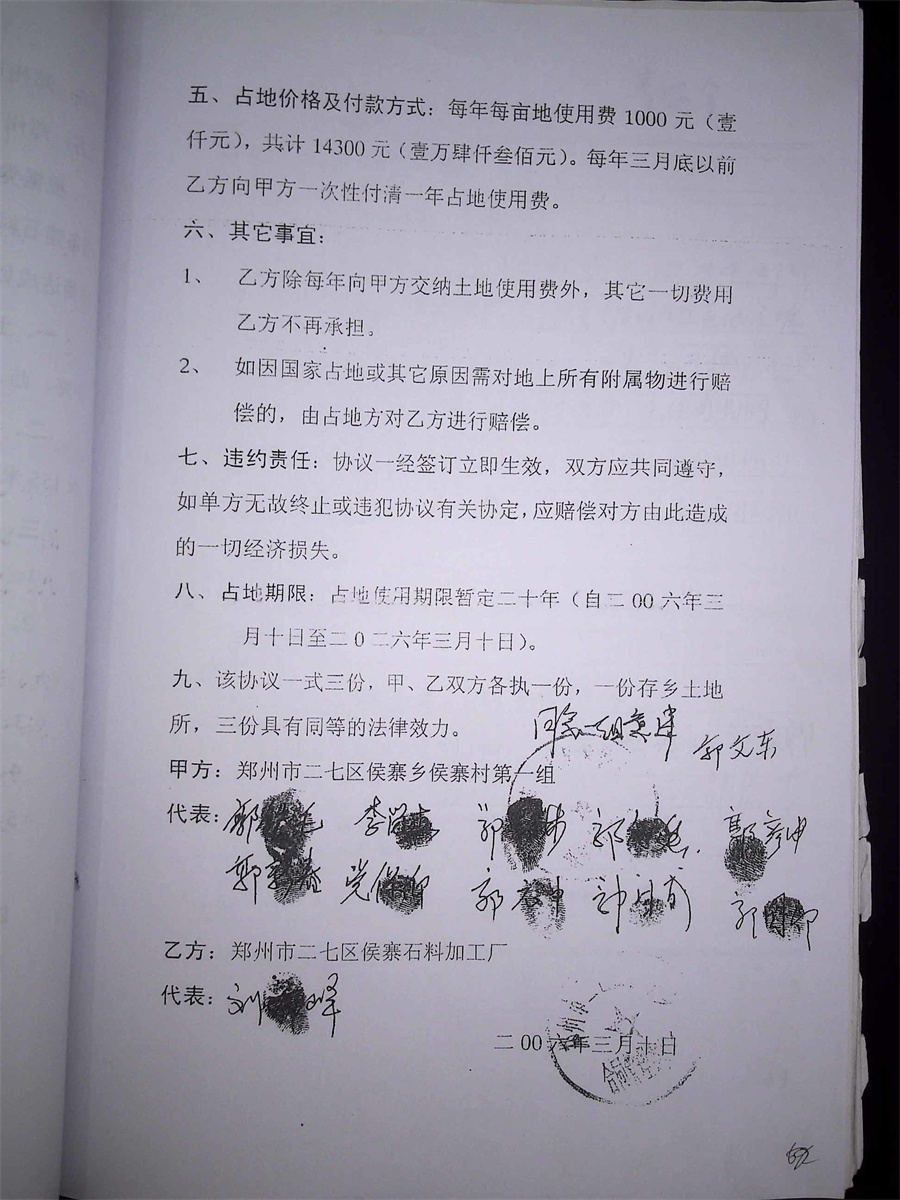 五、占地价格及付款方式：每年每亩地使用费 1000 元（壹
仟元），共计 14300 元（壹万肆仟叁佰元）。每年三月底以前
乙方向甲方一次性付清一年占地使用费。
六、其它事宜：
1、 乙方除每年向甲方交纳土地使用费外，其它一切费用
乙方不再承担。
2、 如因国家占地或其它原因需对地上所有附属物进行赔
偿的，由占地方对乙方进行赔偿。
七、违约责任：协议一经签订立即生效，双方应共同遵守，
如单方无故终止或违犯协议有关协定，应赔偿对方由此造成
的一切经济损失。
八、占地期限：占地使用期限暂定二十年（自二 00 六年三
月十日至二 0 二六年三月十日）。
九、该协议一式三份，甲、乙双方各执一份，一份存乡土地
所，三份具有同等的法律效力。
同意一组意见
郭文东
甲方：郑州市二七区侯寨乡侯寨村第一组
代表：
乙方：郑州市二七区侯寨石料加工厂
代表：
二 00 六年三月十日